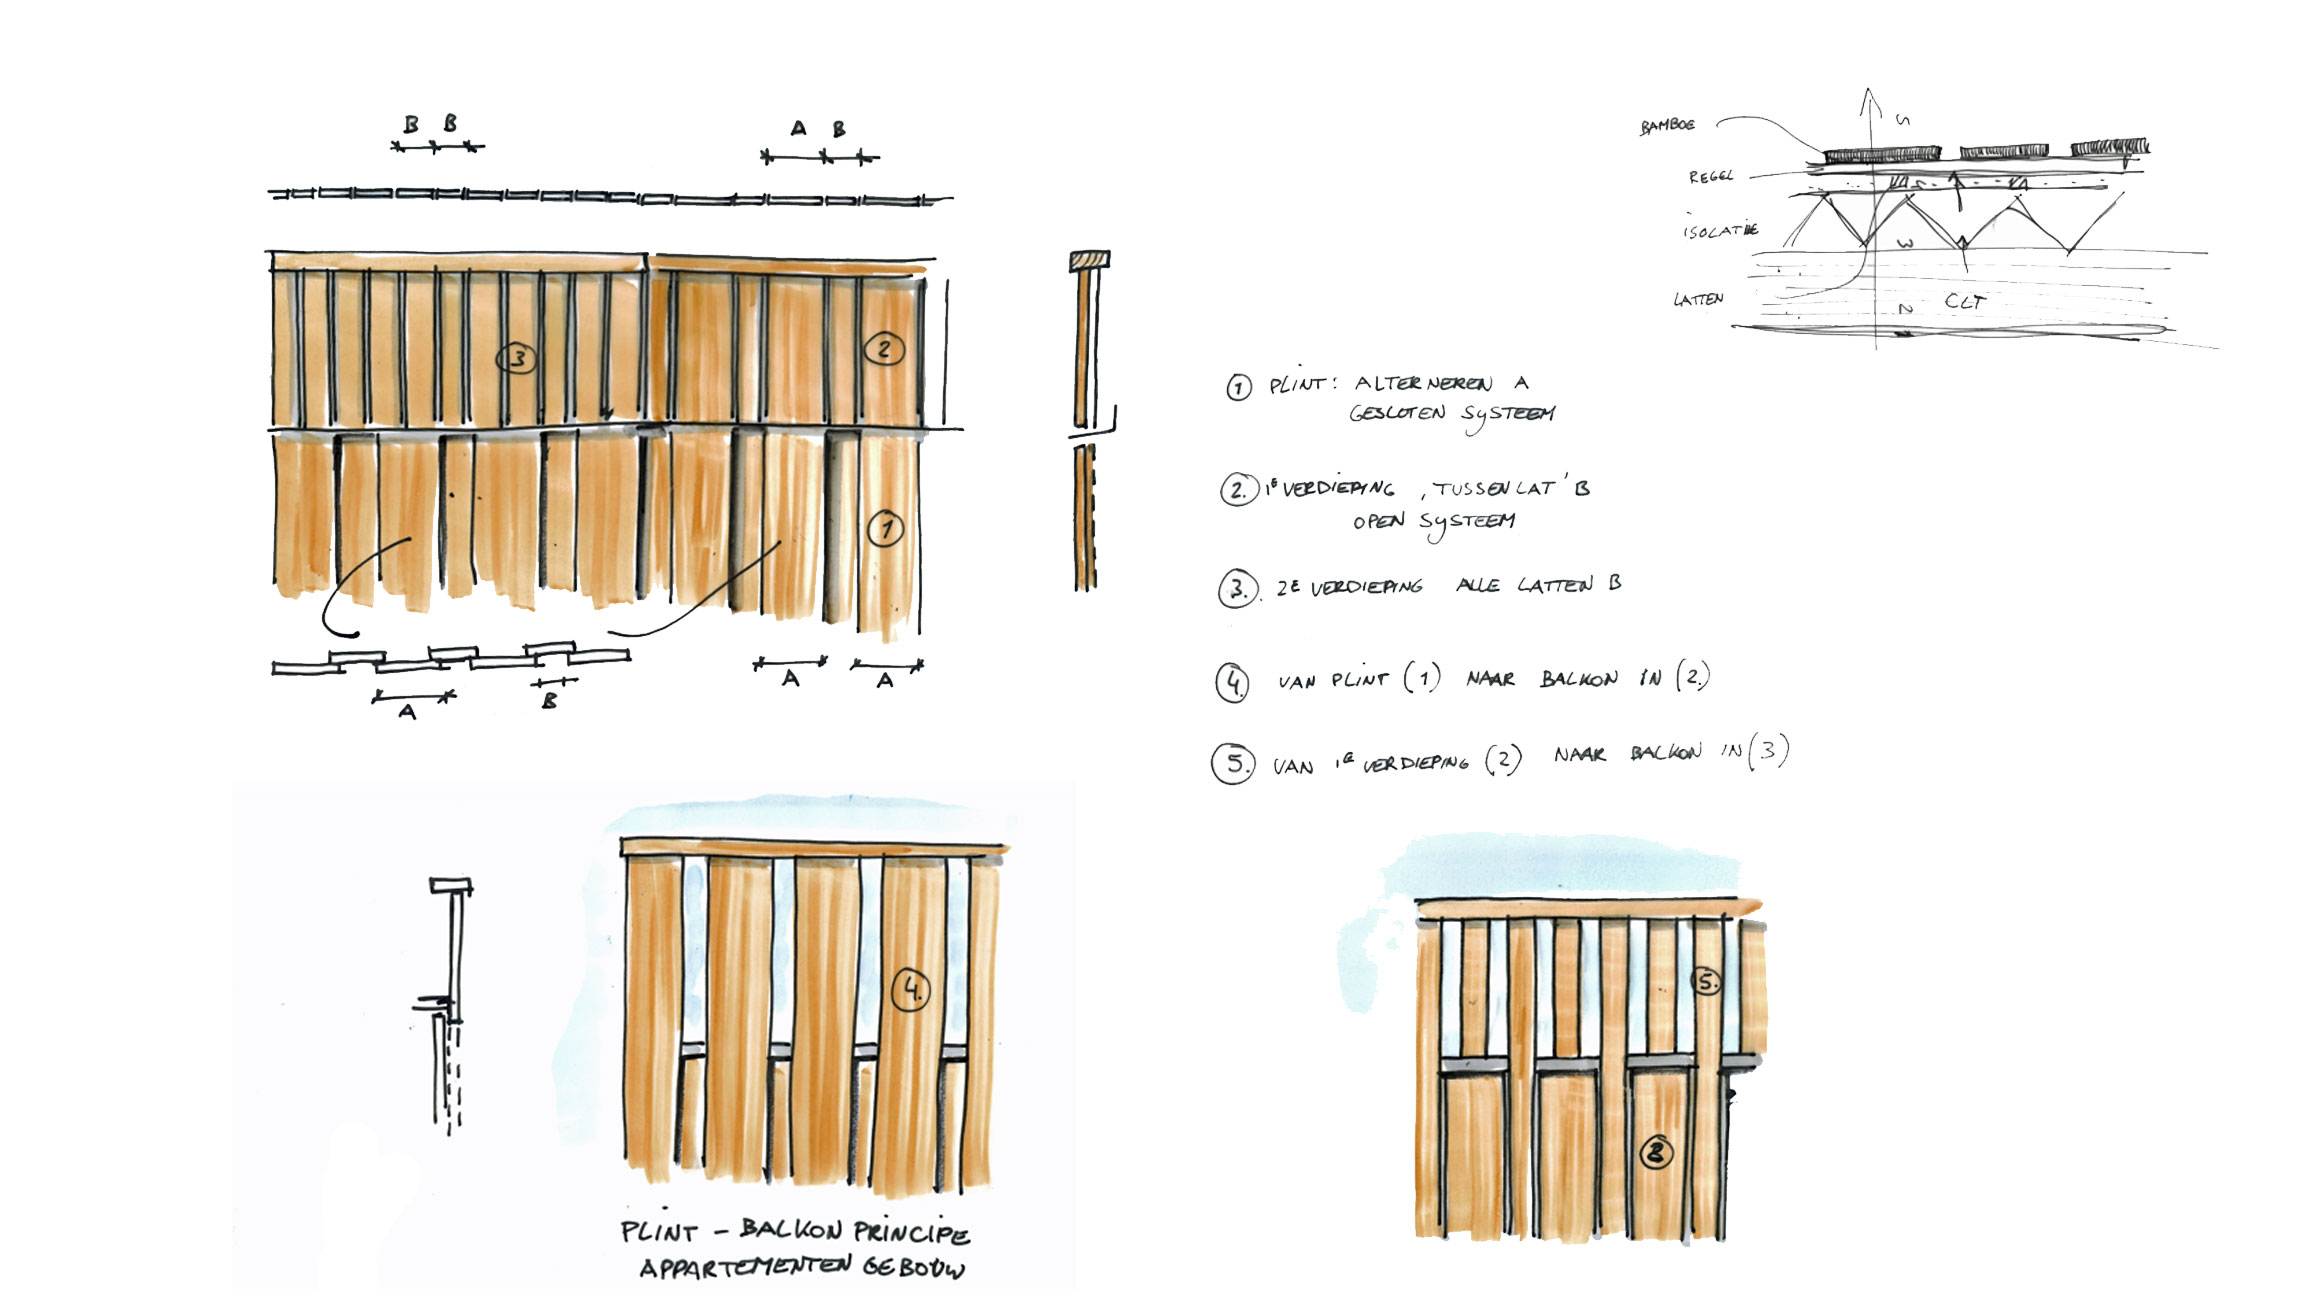 B B
A B
3
2
1
A A
A B
BAMBOE
REGEL
ISOLATIE
LATTEN
CLT
1 PLINT: ALTERNEREN A
GESLOTEN SYSTEEM
2. 1E VERDIEPING , TUSSENLAT' B
OPEN SYSTEEM
3. 2E VERDIEPING ALLE LATTEN B
4. VAN PLINT (1) NAAR BALKON IN (2.)
5. VAN 1E VERDIEPING (2) NAAR BALKON IN (3)
4.
PLINT - BALKON PRINCIPE
APPARTEMENTEN GEBOUW
5.
2